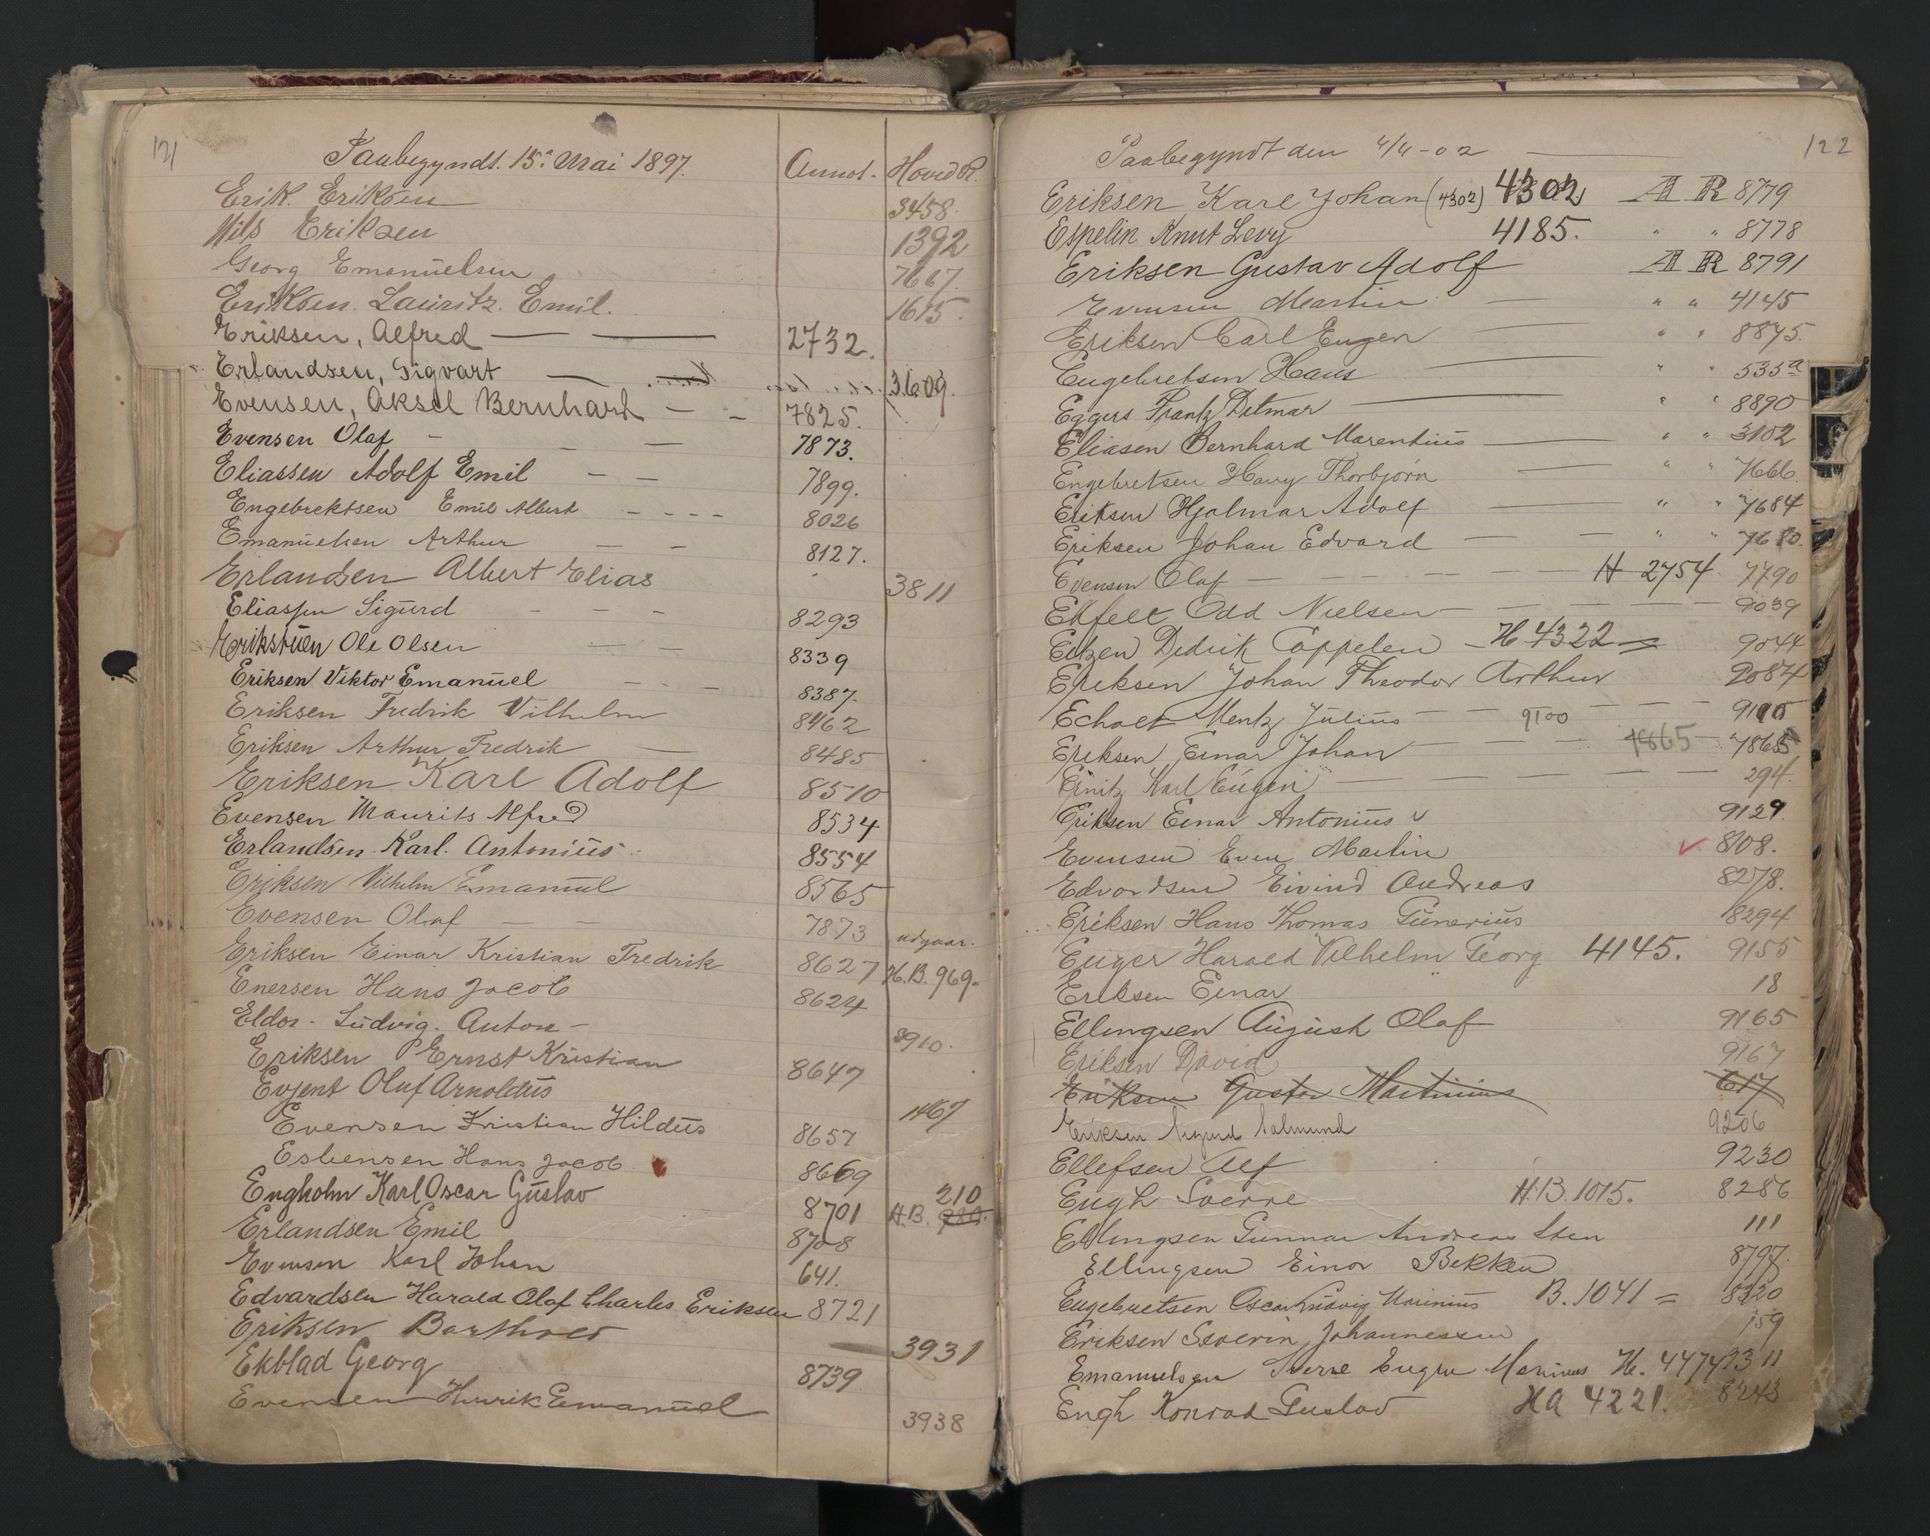 121
Paabegyndt. 15de Mai 1897. Annot. Hoved R.
Erik. Eriksen 3458.
Nils Eriksen 1392
Georg Emanuelsen 7667.
Eriksen. Lauritz. Emil. 1615.
Eriksen, Alfred 2732.
Erlandsen, Sigvart 3609.
Evensen, Aksel Bernhard 7825.
Evensen Olaf 7873.
Eliassen Adolf Emil 7899.
Engebrektsen Emil Albert 8026
Emanuelsen Arthur 8127.
Erlandsen Albert Elias 3811
Eliassen Sigurd 8293
Erikstuen Ole Olsen 8339
Eriksen Viktor Emanuel 8387.
Eriksen Fredrik Vilhelm 8462
Eriksen Arthur Fredrik 8485
Eriksen Karl Adolf 8510
Evensen Maurits Alfred 8534
Erlandsen Karl. Antonius 8554
Eriksen Vilhelm Emanuel 8565
Evensen Olaf 7873 udgaar.
Eriksen Einar Kristian Fredrik 8627 H.B. 969.
Enersen Hans Jacob 8624
Eldor. Ludvig. Anton 3910.
Eriksen Ernst Kristian 8647
Evjent Oluf Arnoldus 1467
Evensen Kristian Hildus 8657
Esbensen Hans Jacob 8669
Engholm Karl Oscar Gustav 8701 H.B. 980. 210
Erlandsen Emil 8708
Evensen Karl Johan 641.
Edvardsen Harald Olaf Charles Eriksen 8721
Eriksen Barthold 3931
Ekblad Georg 8739
Evensen Henrik Emanuel 3938
122
Paabegyndt den 4/4-02
Eriksen Karl Johan (4302) 4302 A R 8779
Espelin Knut Levy 4185. " " 8778
Eriksen Gustav Adolf A R 8791
Evensen Martin " " 4145
Eriksen Carl Eugen " " 8875.
Engebretsen Hans " " 535a
Eggers Frantz Detmar " " 8890
Eliasen Bernhard Marentius " " 3102
Engebretsen Harry Thorbjørn " " 7666.
Eriksen Hjalmar Adolf " " 7684
Eriksen Johan Edvard " " 7680.
Evensen Olaf H 2754 7790
Ekfelt Odd Nielsen 9039
Eitzen Dedrik Cappelen H 4322 9044
Eriksen Johan Theodor Arthur 2084
Echolt Mentz Julius 9100 9105
Eriksen Einar Johan 7865 7865
Ernitz Karl Eugen 294.
Eriksen Einar Antonius v 9129.
Evensen Even Martin ✓ 8108.
Edvardsen Eivind Andreas 8278.
Eriksen Hans Thomas Gunerius 8294
Euger Harald Vilhelm Georg 4145. 9155
Eriksen Einar 18
Ellingsen August Olaf 9165
Eriksen David 9167
Eriksen Gustav Martinius 617
Eriksen Sigurd Salmund 9206
Ellefsen Alf 9230
Engh Sverre H.B. 1015. 8286
Ellingsen Gunnar Andreas Sten 111
Ellingsen Einar Bekken 8797.
Engebretsen Oscar Ludvig Marinius B. 1041 = 8320
Eriksen Severin Johannessen 159
Emanuelsen Sverre Eugen Marinus H. 4474 2311
Engh Konrad Gustav HA 4221. 8243